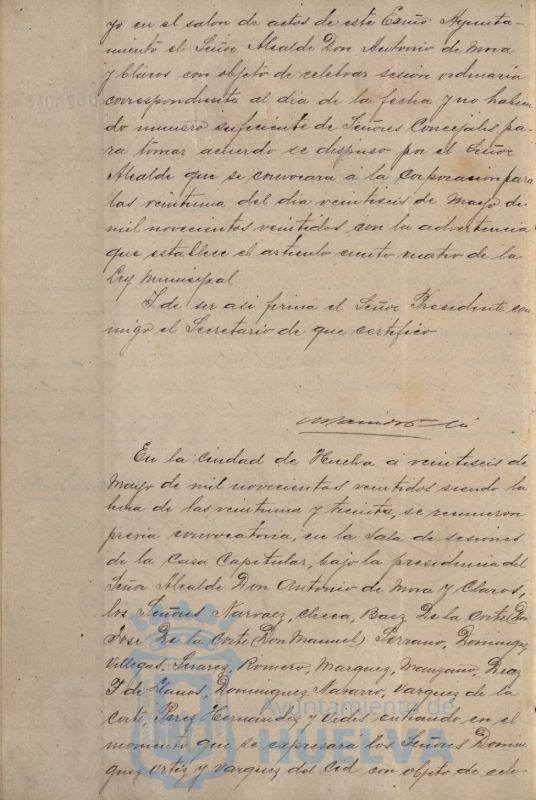 yo en el salon de actos de este Excmo Ayunta-
miento el Señor Alcalde Don Antonio de Mora
y Claros con objeto de celebrar sesion ordinaria
correspondiente al dia de la fecha y no habien
do numero suficiente de Señores Concejales pa-
ra tomar acuerdo se dispuso por el Señor
Alcalde que se convocara á la Corporacion para
las veintiuna del dia veintiseis de Mayo de
mil novecientos veintidos con la advertencia
que establece el articulo ciento cuatro de la
Ley Municipal
Y de ser asi firma el Señor Presidente con
migo el Secretario de que certifico
En la Ciudad de Huelva á veintiseis de
Mayo de mil novecientos veintidos siendo la
hora de las veintiuna y treinta, se reunieron
previa convocatoria, en la Sala de sesiones
de la Casa Capitular, bajo la presidencia del
Señor Alcalde Don Antonio de Mora y Claros,
los Señores Narvaez, Checa, Baez De la Corte (Don
José De la Corte (Don Manuel) Serrano, Dominguez
Villegas, Suarez, Romero, Marquez, Manzano, Diaz
F de Llanos, Dominguez Navarro, Vazquez de la
Corte, Perez Hernandez y Vides entrando en el
momento que se expresará los Señores Domin
guez Ortiz y Vazquez del Cid con objeto de cele
Ayuntamiento de
HUELVA